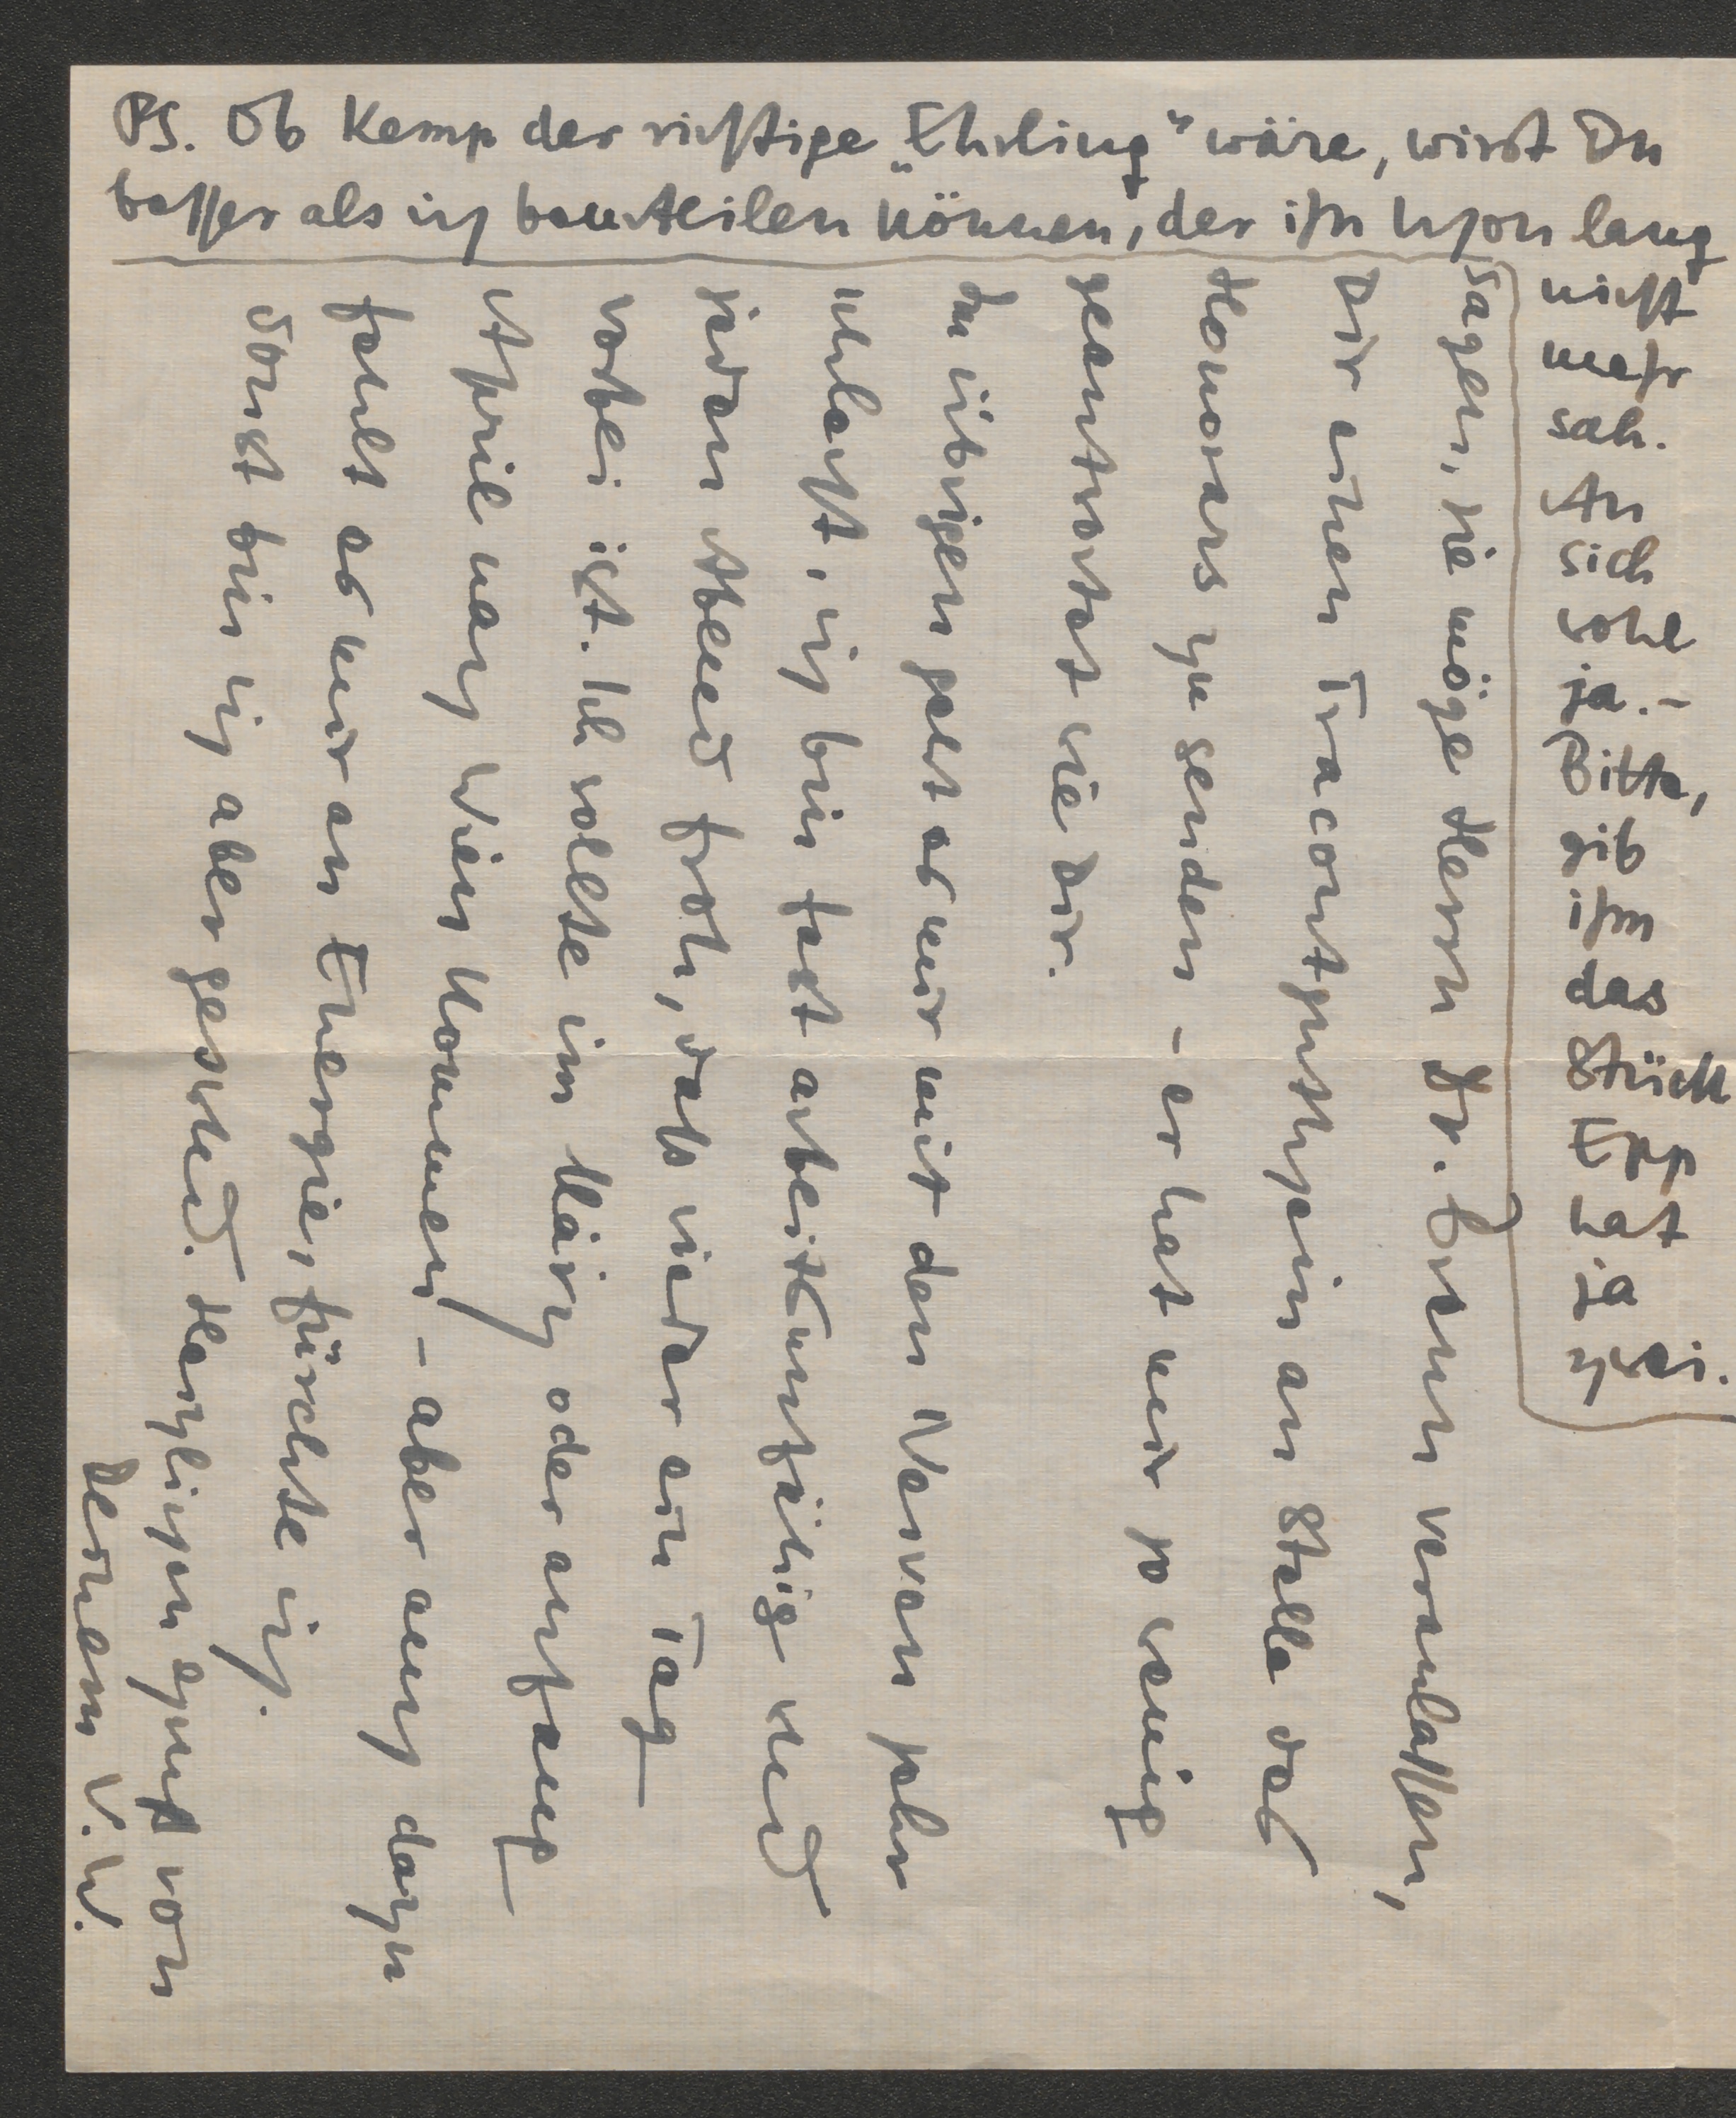 sagen, sie möge Herrn Dr. Brunn veranlassen,
Dir einen Traconтgutschein an Stelle des
Honorars zu senden – er hat mir so wenig
geantwortet wie dir.
Im übrigen geht es mir mit den Nerven sehr
schlecht, ich bin fast arbeitsunfähig und
jeden Abend froh, dass wieder ein Tag
vorbei ist. Ich wollte im März oder anfang
April nach Wien kommen – aber auch dazu
fehlt es mir an Energie, fürchte ich.
Sonst bin ich aber gesund. Herzlichen Gruß von
Deinem V. W.
PS. Ob Kemp der richtige „Ehrling" wäre, wirst Du
besser als ich beurteilen können, der ihn schon lang
nicht
mehr
sah.